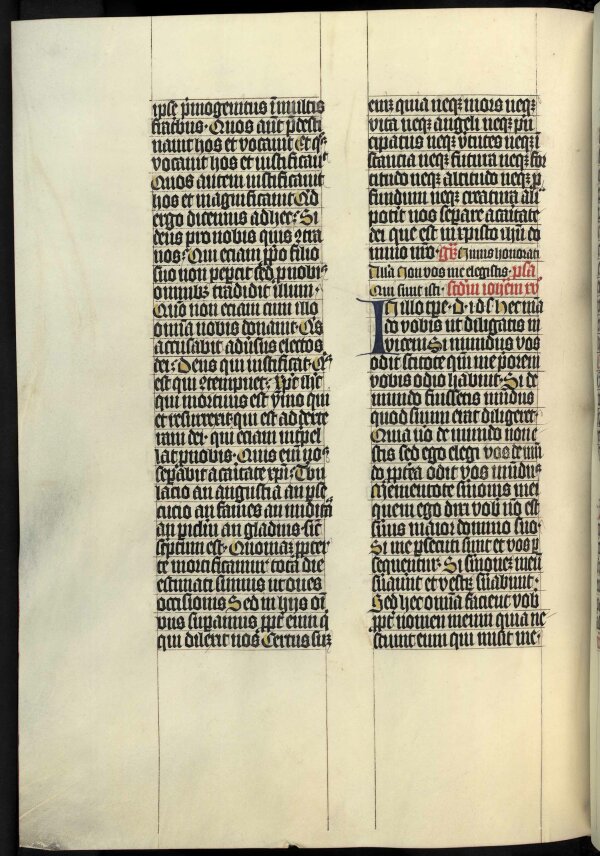 ipse p̄mogenitus ī multis
fratribus. Quos aūt p̄desti
nauit hos et vocauit Et qͦs
vocauit hos et iustificauͥt
Quos autem iustificauit
hos et magnificauit Qͥd
ergo dicemus ad hec. Si
deus pro nobis quis ꝯtra
nos. Qui eciam pprͦo filio
suo non pepercit sed ꝓ nobis
omnibꝫ tradidit illum.
Quō non eciam cum illo
omnia nobis donauit. Qͥs
accusabit aduersus electos
dei. Deus qui iustificat. Qͥs
est qui ꝯtempnet. Xp̄c ih̄c
qui mortuus est ymo qui
et resurrexit qui est ad dexte
ram dei. qui eciam int̄pel
lat ꝓ nobis. Quis em̄ nos
sep̄abit a caritate xp̄i. Tbu
lacio an angustia an p̄se
cucio an fames an nuditas
an piclm̄ an gladius. sic̄
sc̄ptum est. Quoniaꝫ ppter
te mortificamur tota die
estimati sumus ut oues
occisionis Sed in hijs oī
bus supamus ppt̄ eum q̄
qui dilexit nos Certus suꝫ
enī quia neqꝫ mors neqꝫ
vita neqꝫ angeli neqꝫ p̄n
cipatus neqꝫ v̄tutes neqꝫ ī
stancia neqꝫ futura neqꝫ for
titudo neqꝫ altitudo neqꝫ p̄
fundum neqꝫ creatura ali
potit nos separe a caritate
dei que est in xp̄isto ih̄u do
mino nr̄o. gͣd Nimis honorati
Allā Non vos me elegistis. psā
Qui sunt isti. Scd̄m ioh̄em xv
In illo tp̄e. D. i. d. s. Hec mā
do vobis ut diligatis in
vicem Si mundus vos
odit scitote qm̄ me priorem
vobis odio habuit. Si de
mundo fuissetis mūdus
quod suum erat diligeret
Quia v̄o de mundo non e
stis sed ego elegi vos de mū
do ppt̄ea odit vos mūdus
Mementote s̄monis mei
quem ego dixi vob̄ nō est
s̄uus maior domino suo.
Si me p̄secuti sunt et vos p̄
sequentur. Si s̄monē meū
s̄uauerūt et vestꝝ s̄uabunt.
Sed hec om̄ia facient vob̄
ppt̄ nomen meum quia ne
sciunt eum qui misit me.